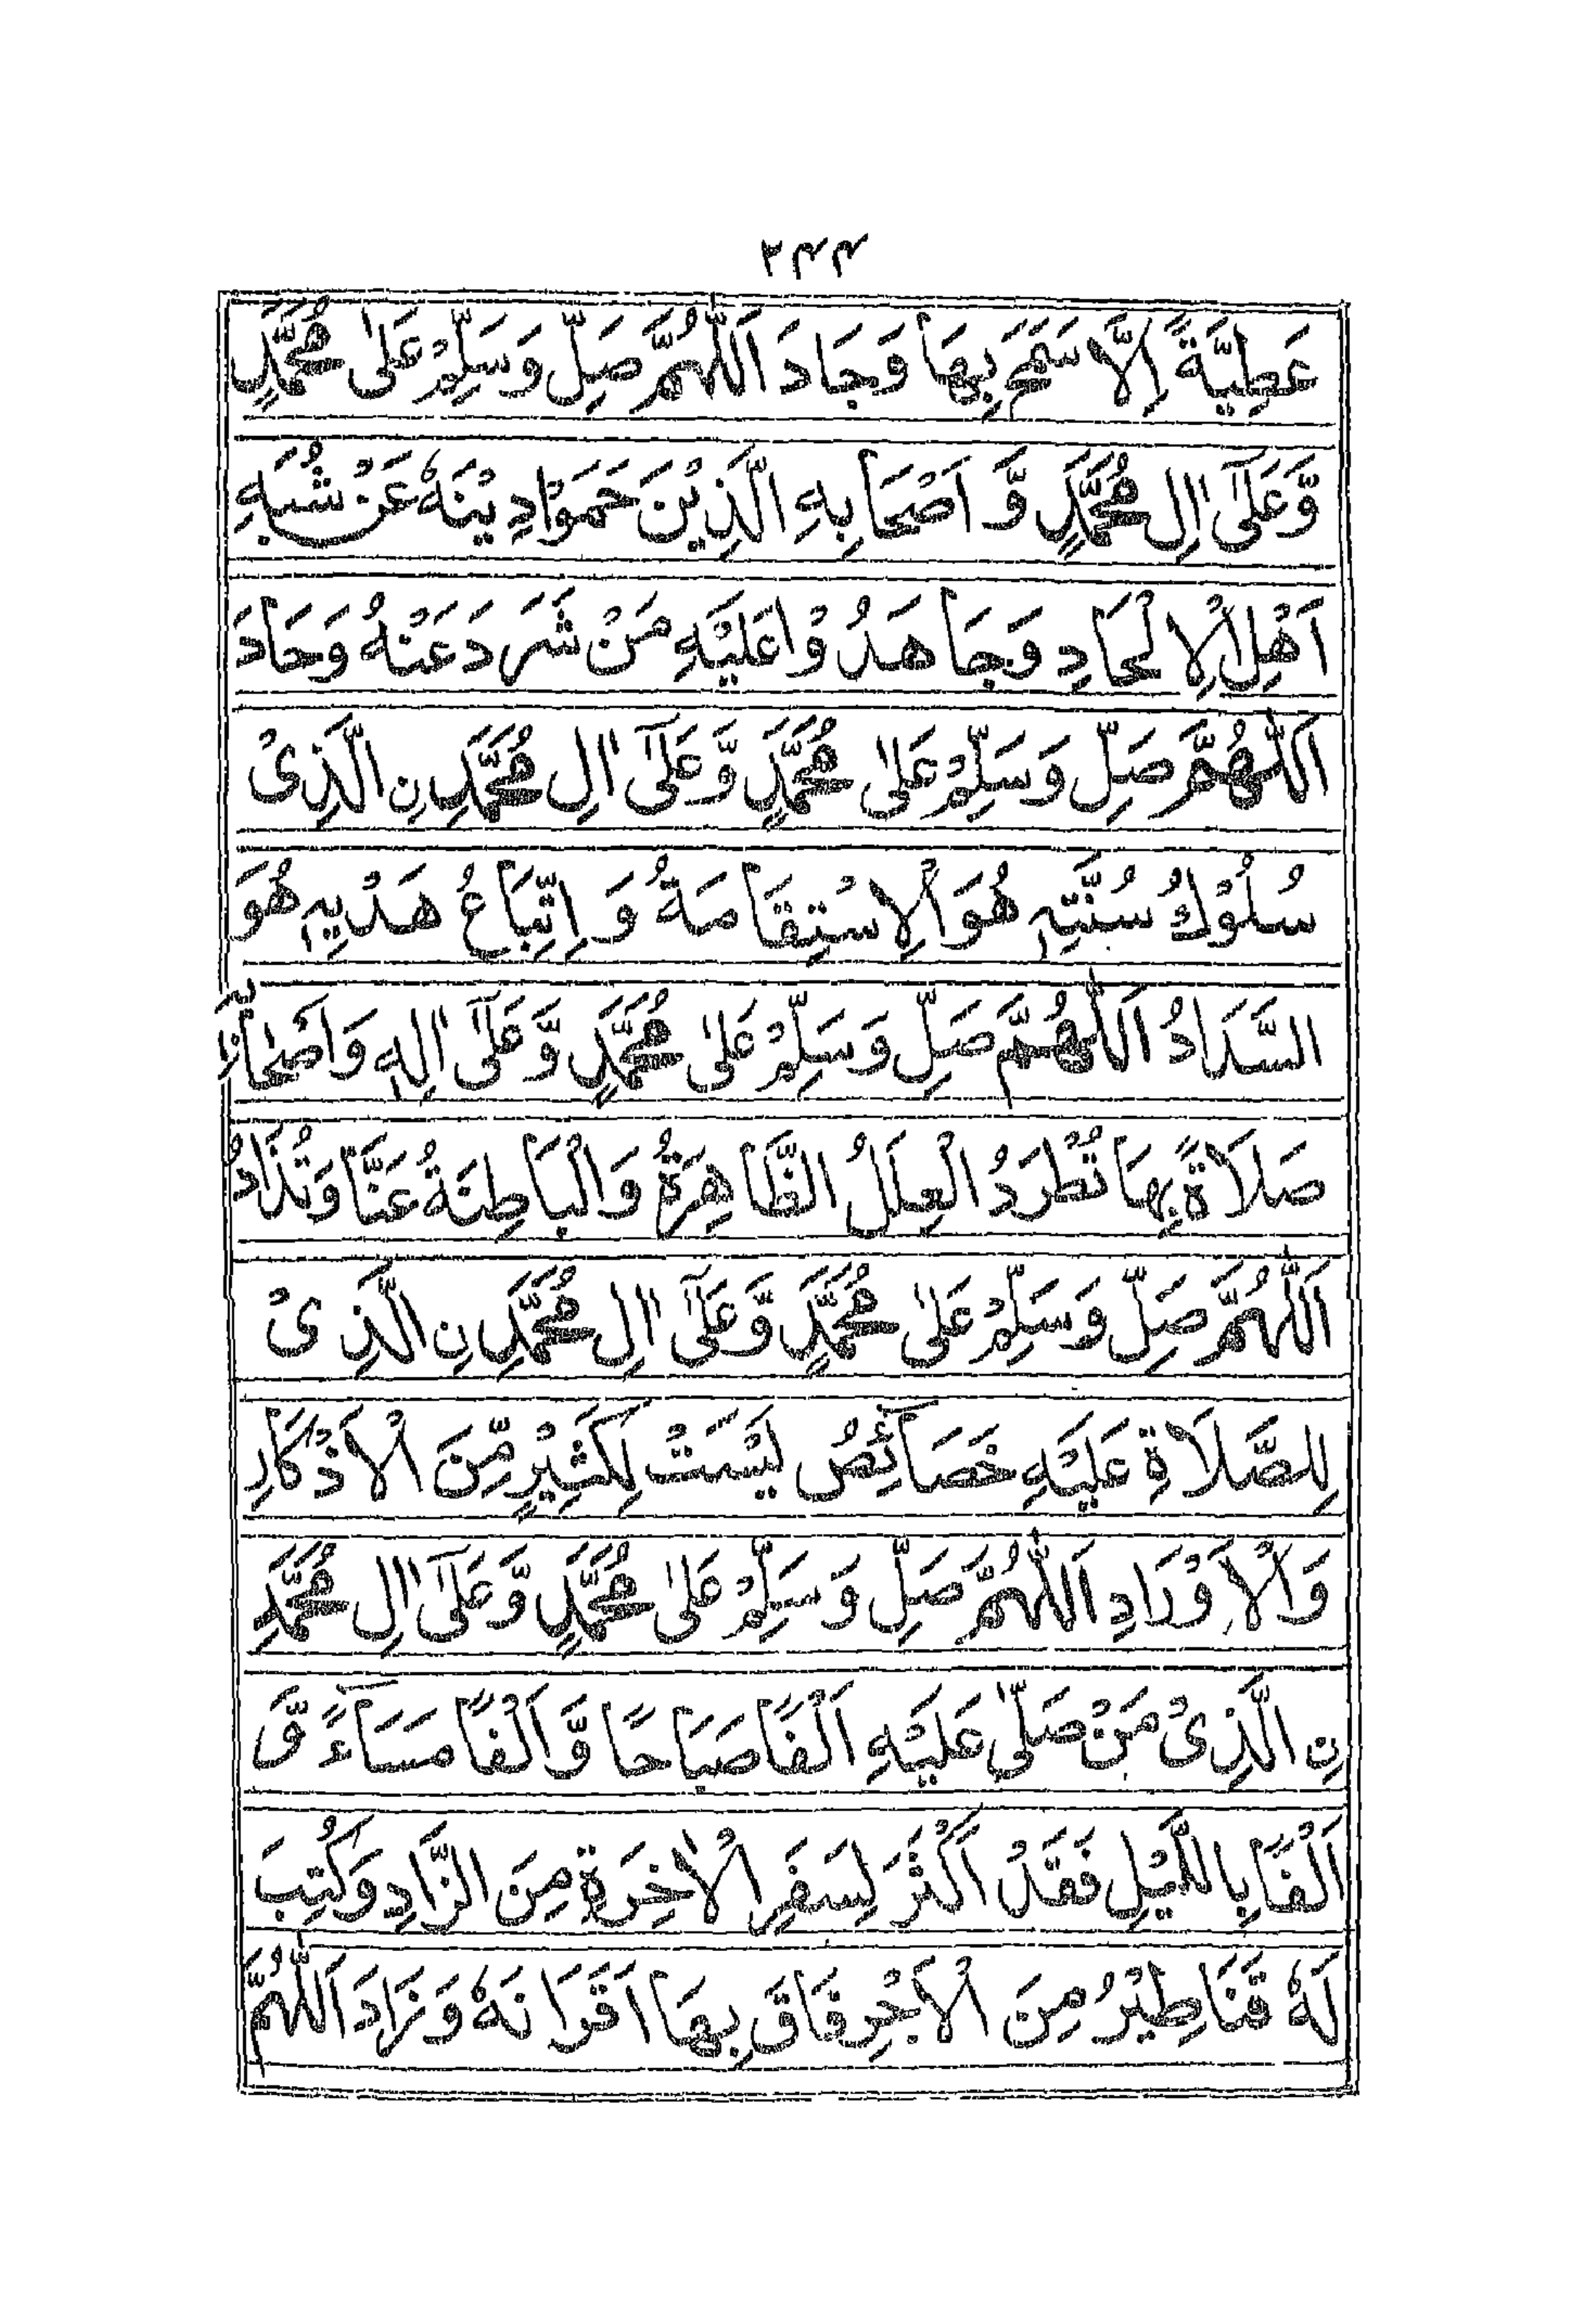 ۲۴۴
عَطِيَّةً اِلَّا سَمَحَ بِهَا وَجَادَ اَللّٰهُمَّ صَلِّ وَسَلِّمْ عَلٰى مُحَمَّدٍ
وَّعَلٰٓى اٰلِ مُحَمَّدٍ وَّ اَصْحَابِهِ الَّذِيْنَ حَمَوْا دِيْنَهٗ عَنْ شُبَهِ
اَهْلِ الْاِلْحَادِ وَجَاهَدُوْا عَلَيْهِ مَنْ شَرَدَ عَنْهُ وَحَادَ
اَللّٰهُمَّ صَلِّ وَسَلِّمْ عَلٰى مُحَمَّدٍ وَّعَلٰٓى اٰلِ مُحَمَّدِ نِ الَّذِىْ
سُلُوْكُ سُنَّتِهٖ هُوَ الْاِسْتِقَامَةُ وَ اِتِّبَاعُ هَدْيِهٖ هُوَ
السَّدَادُ اَللّٰهُمَّ صَلِّ وَسَلِّمْ عَلٰى مُحَمَّدٍ وَّعَلٰٓى اٰلِهٖ وَاَصْحَابِهٖ
صَلَاةً بِهَا تُطْرَدُ الْعِلَلُ الظَّاهِرَةُ وَالْبَاطِنَةُ عَنَّا وَتُذَادُ
اَللّٰهُمَّ صَلِّ وَسَلِّمْ عَلٰى مُحَمَّدٍ وَّعَلٰٓى اٰلِ مُحَمَّدِ نِ الَّذِىْ
لِلصَّلَاةِ عَلَيْهِ خَصَآئِصُ لَيْسَتْ لِكَثِيْرٍ مِّنَ الْاَذْكَارِ
وَالْاَوْرَادِ اَللّٰهُمَّ صَلِّ وَسَلِّمْ عَلٰى مُحَمَّدٍ وَّعَلٰٓى اٰلِ مُحَمَّدِ
نِ الَّذِىْ مَنْ صَلّٰى عَلَيْهِ اَلْفًا صَبَاحًا وَّاَلْفًا مَسَآءً وَّ
اَلْفًا بِاللَّيْلِ فَقَدْ اَكْثَرَ لِسَفَرِ الْاٰخِرَةِ مِنَ الزَّادِ وَكُتِبَ
لَهٗ قَنَاطِيْرُ مِنَ الْاَجْرِ فَاقَ بِهَا اَقْرَانَهٗ وَزَادَ اَللّٰهُمَّ